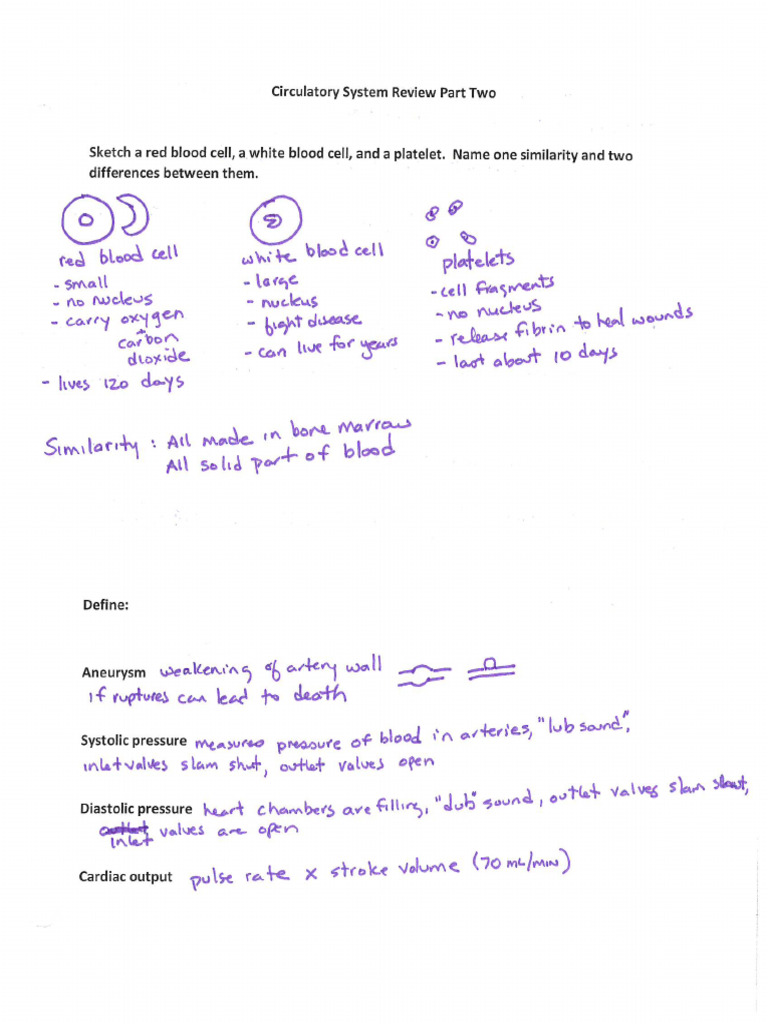 Circulatory System Review Part Two
Sketch a red blood cell, a white blood cell, and a platelet. Name one similarity and two
differences between them.
red blood cell
- small
- no nucleus
- carry oxygen
+
carbon
dioxide
- lives 120 days
white blood cell
- large
- nucleus
- fight disease
- can live for years
platelets
- cell fragments
- no nucleus
- release fibrin to heal wounds
- last about 10 days
Similarity : All made in bone marrow
All solid part of blood
Define:
Aneurysm weakening of artery wall
if ruptures can lead to death
Systolic pressure measures pressure of blood in arteries, "lub sound",
inlet valves slam shut, outlet valves open
Diastolic pressure heart chambers are filling, "dub" sound, outlet valves slam shut,
outlet valves are open
inlet
Cardiac output pulse rate x stroke volume (70 mL/min)